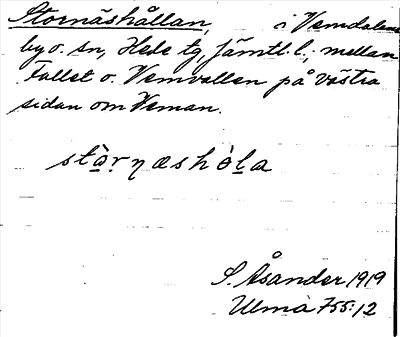 Stornäshållan, i Vemdalens
by o. sn, Hede tg, Jämtl. l.; mellan
Fallet o. Vemvallen på västra
sidan om Veman.
stạ̀ṛṇæshò̱ḻa
S. Åsander 1919
Ulma 755:12